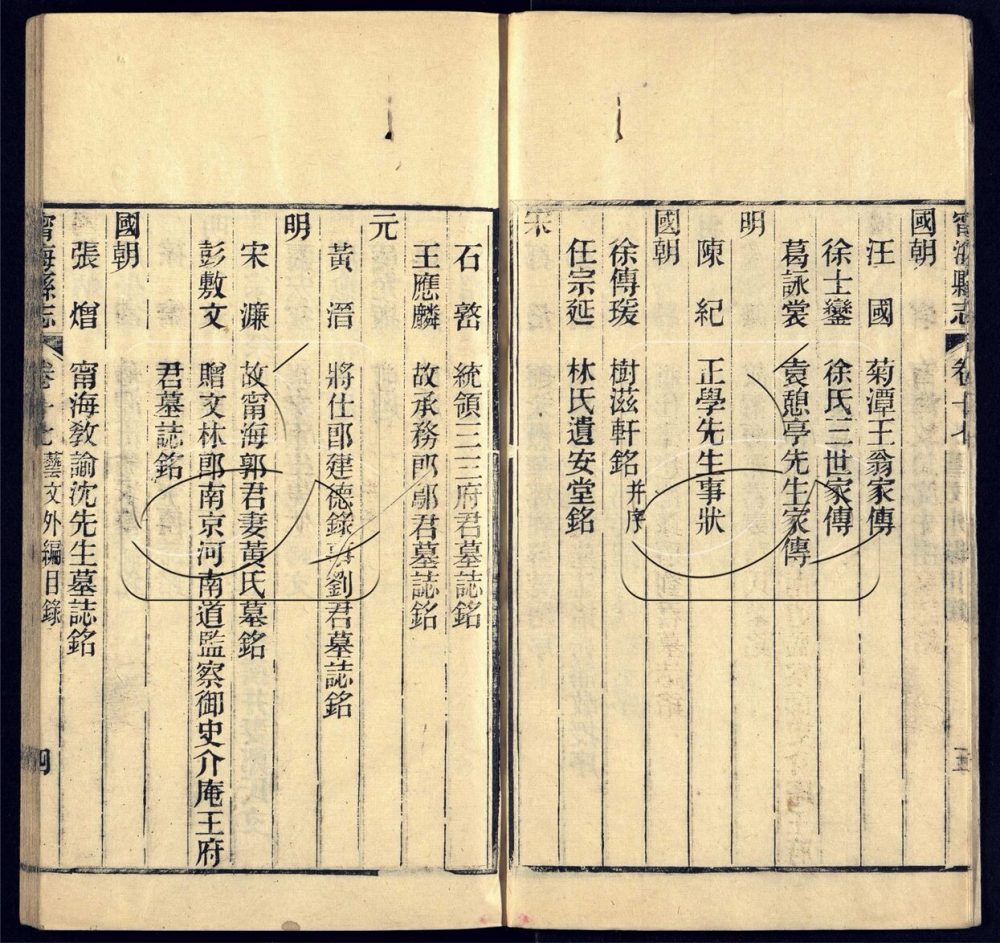 甯海縣志 卷十七 五
國朝
汪國 菊潭王翁家傳
徐士鑾 徐氏三世家傳
葛詠裳 袁憩亭先生家傳
明
陳紀 正學先生事狀
國朝
徐傳瑗 樹滋軒銘并序
任宗延 林氏遺安堂銘
宋
石 統領三三府君墓誌銘
王應麟 故承務郎鄔君墓誌銘
元
黃溍 將仕郎建德錄事劉君墓誌銘
明
宋濂 故甯海郭君妻黃氏墓銘
彭敷文 贈文林郎南京河南道監察御史介庵王府
君墓誌銘
國朝
張熷 甯海教諭沈先生墓誌銘
甯海縣志 卷十七 藝文外編目錄 四